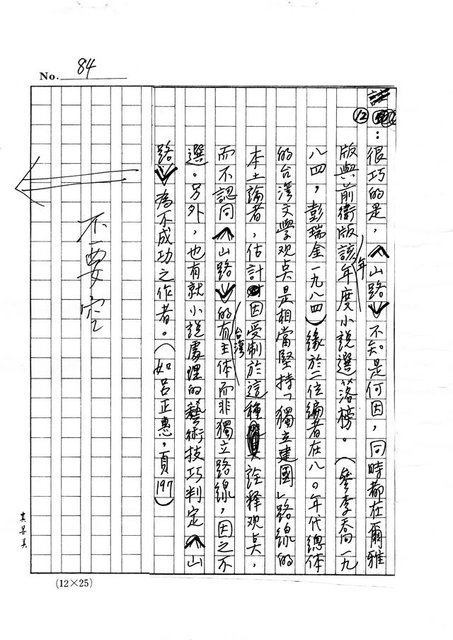 No. 84
註
⑫：很巧的是，《山路》不知是何因，同時都在爾雅
版與前衛版該年年度小說選落榜。（參李喬一九
八四，彭瑞金一九八四）緣於二位編者在八○年代總体
的台灣文學观点是相當堅持「獨立建國」路線的
本土論者，估計因受制於這種詮释观点，
而不認同《山路》的有台灣主体而非獨立路線，因之不
選。另外，也有就小說處理的藝術技巧判定《山
路》為不成功之作者。（如呂正惠，頁197）
不要空
(12×25)